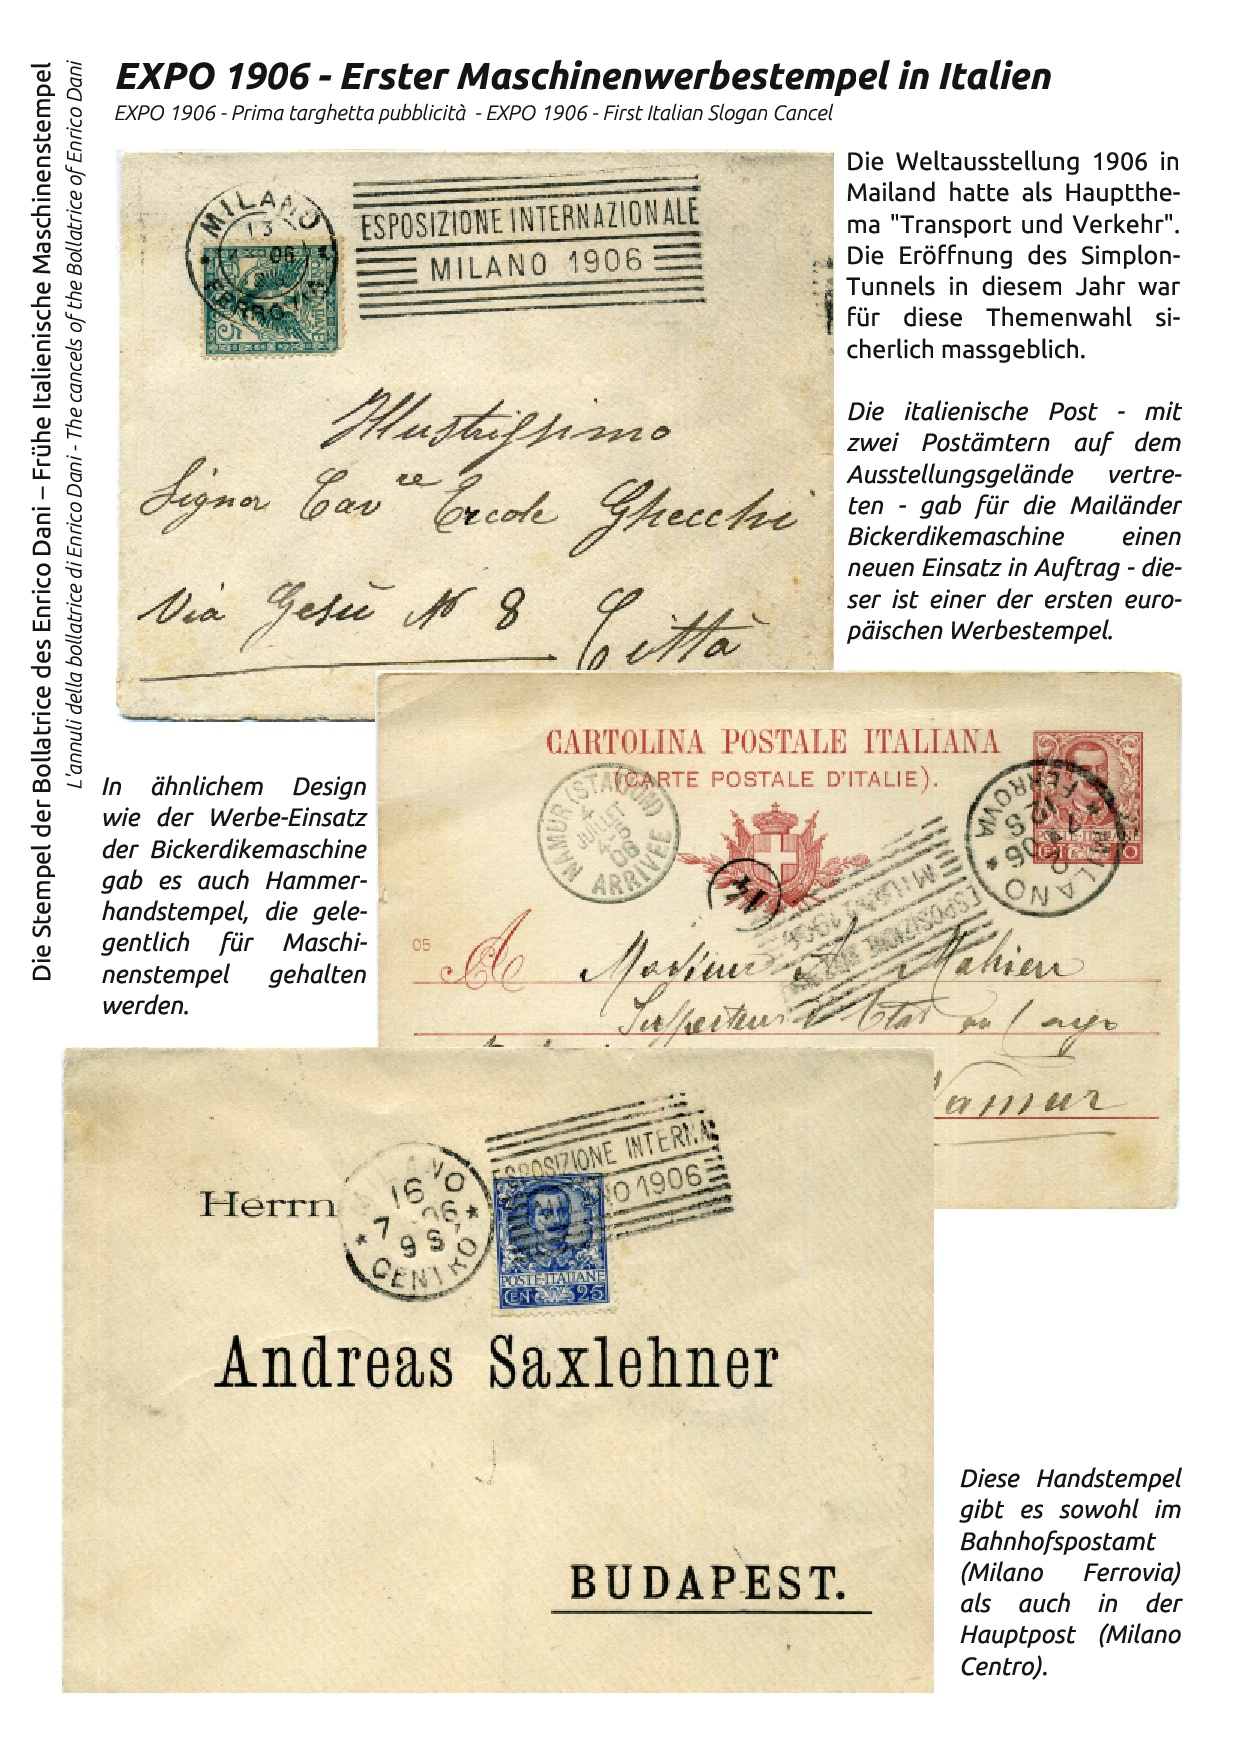 EXPO 1906 - Erster Maschinenwerbestempel in Italien
EXPO 1906 - Prima targhetta pubblicità - EXPO 1906 - First Italian Slogan Cancel
Die Stempel der Bollatrice des Enrico Dani – Frühe Italienische Maschinenstempel
L'annuli della bollatrice di Enrico Dani - The cancels of the Bollatrice of Enrico Dani
MILANO
13
06
FERROVIA
ESPOSIZIONE INTERNAZIONALE
MILANO 1906
5
Illustrissimo
Signor Cav re Ercole Ghecchi
Via Gesù N 8
Città
Die Weltausstellung 1906 in
Mailand hatte als Hauptthe-
ma "Transport und Verkehr".
Die Eröffnung des Simplon-
Tunnels in diesem Jahr war
für diese Themenwahl si-
cherlich massgeblich.
Die italienische Post - mit
zwei Postämtern auf dem
Ausstellungsgelände vertre-
ten - gab für die Mailänder
Bickerdikemaschine einen
neuen Einsatz in Auftrag - die-
ser ist einer der ersten euro-
päischen Werbestempel.
CARTOLINA POSTALE ITALIANA
(CARTE POSTALE D'ITALIE).
NAMUR (STATION)
4
JUILLET
4-5
06
ARRIVÉE
14
MILANO
FERROVIA
ESPOSIZIONE
MILANO 1906
05
A
Monsieur A. Mahieu
Namur
In ähnlichem Design
wie der Werbe-Einsatz
der Bickerdikemaschine
gab es auch Hammer-
handstempel, die gele-
gentlich für Maschi-
nenstempel gehalten
werden.
MILANO
16
7 06
9 S
CENTRO
ESPOSIZIONE INTERNA
MILANO 1906
POSTE·ITALIANE
CEN 25
Herrn
Andreas Saxlehner
BUDAPEST.
Diese Handstempel
gibt es sowohl im
Bahnhofspostamt
(Milano Ferrovia)
als auch in der
Hauptpost (Milano
Centro).